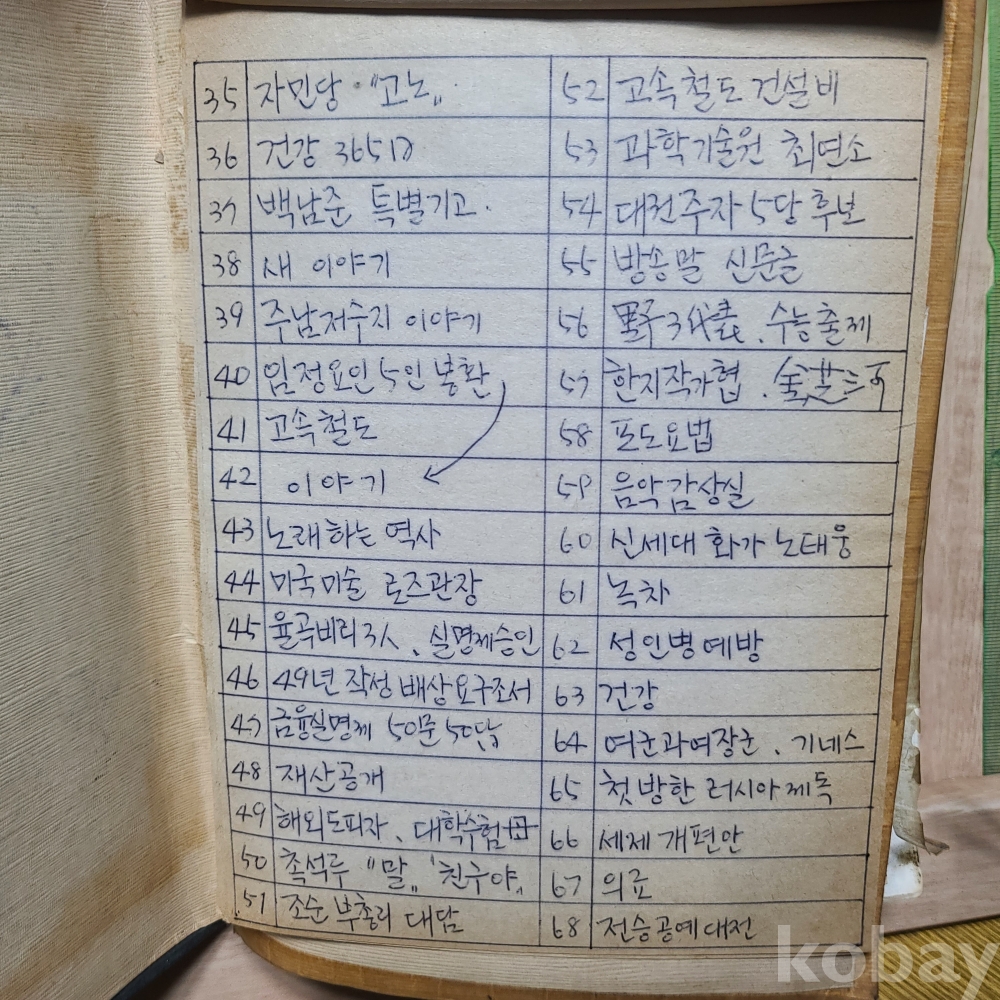 35 자민당 "고노"
36 건강 365일
37 백남준 특별기고.
38 새 이야기
39 주남저수지 이야기
40 임정요인 5인 봉환
41 고속철도
42 이야기
43 노래하는 역사
44 미국미술 로즈관장
45 율곡비리 3人、실명제승인
46 49년 작성 배상요구조서
47 금융실명제 50문 50답
48 재산공개
49 해외도피자、대학수험
50 촉석루 "말" '친구야'
51 조순 부총리 대담
52 고속철도 건설비
53 과학기술원 최연소
54 대권주자 5당 후보
55 방송말 신문글
56 野 3代表、수능출제
57 한지작가협、
58 포도요법
59 음악감상실
60 신세대 화가 노태웅
61 녹차
62 성인병예방
63 건강
64 여군과여장군、기네스
65 첫 방한 러시아제독
66 세제 개편안
67 의료
68 전승공예대전
kobay